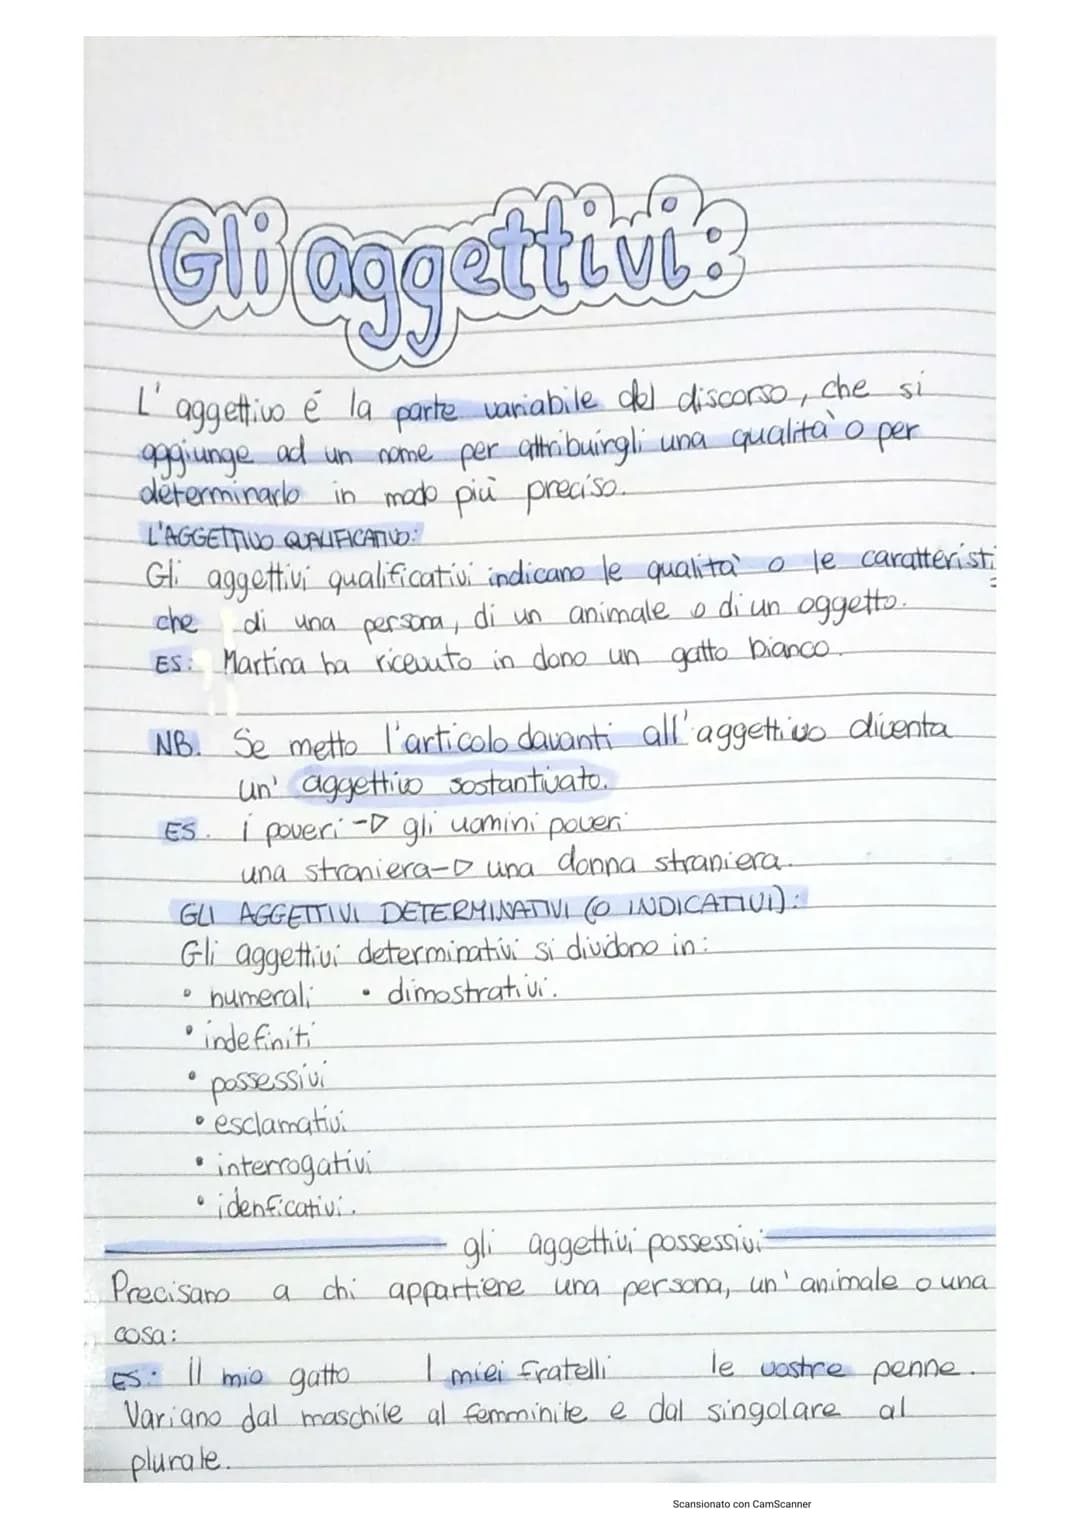 Gli aggettivi:
L'aggettivo é la parte variabile del discorso, che si
aggiunge ad un nome per attribuirgli una qualità o per
determinarlo in modo più preciso.
L'AGGETTIVO QUALIFICATIVO:
Gli aggettivi qualificativi indicano le qualità o le caratteristi
che di una persona, di un animale o di un oggetto.
ES: Martina ha ricevuto in dono un gatto bianco.
NB. Se metto l'articolo davanti all'aggettivo diventa
un' aggettivo sostantivato.
ES. i poveri -> gli uomini poveri
una straniera -> una donna straniera.
GLI AGGETTIVI DETERMINATIVI (O INDICATIVI):
Gli aggettivi determinativi si dividono in:
• numerali • dimostrativi.
• indefiniti
• possessivi
• esclamativi
• interrogativi
• idenficativi.
gli aggettivi possessivi
Precisano a chi appartiene una persona, un' animale o una
cosa:
ES: Il mio gatto I miei fratelli le vostre penne.
Variano dal maschile al femminile e dal singolare al
plurale.
Scansionato con CamScanner